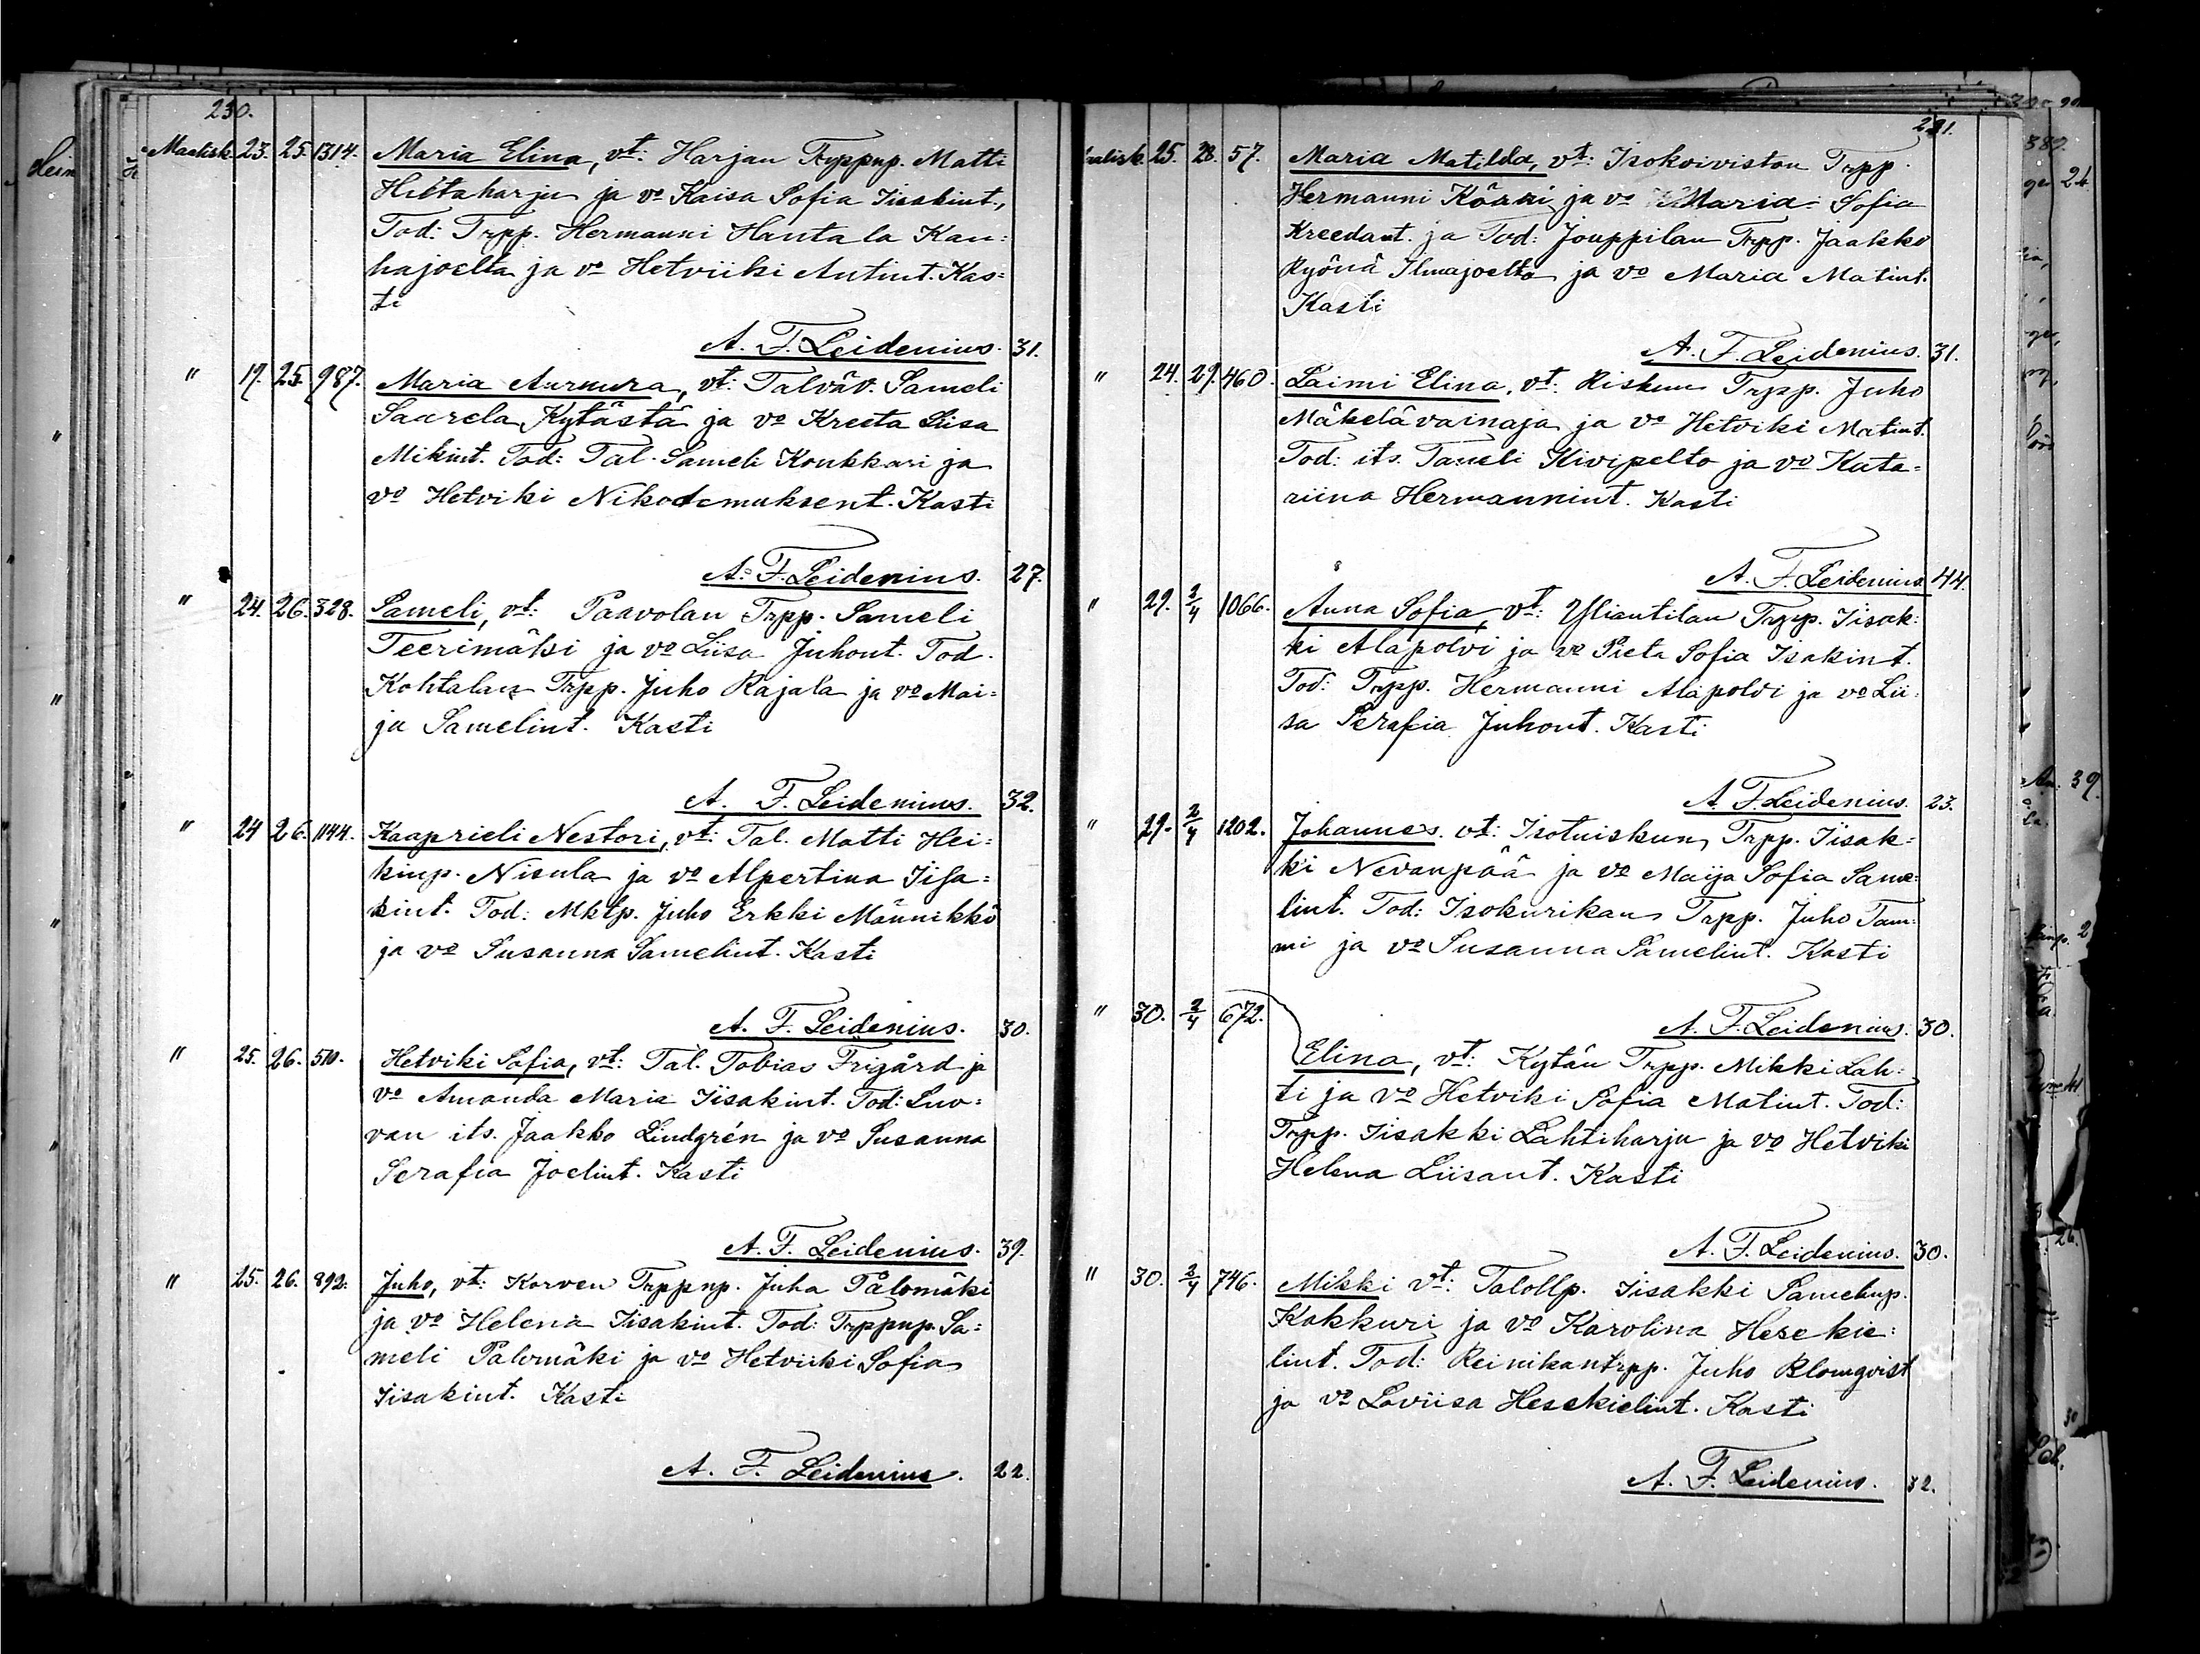 230.
Maalisk. 23. 25. 1314. Maria Elina, vt: Harjan Trppnp. Matti
Hietaharju ja vo Kaisa Sofia Iisakint.,
Tod: Trpp. Hermanni Hantala Kau=
hajoelta ja vo Hetviiki Antint. Kas=
ti
A. F. Leidenius. 31.
" 19. 25. 987. Maria Aurora, vt: Talväv. Sameli
Saarela Kytästä ja vo Kreeta Liisa
Mikint. Tod: Tal. Sameli Koukkari ja
vo Hetviki Nikodemuksent. Kasti
A. F. Leidenius. 27.
" 24. 26. 328. Sameli, vt: Paavolan Trpp. Sameli
Teerimäki ja vo Liisa Juhont. Tod.
Kohtalan Trpp. Juho Rajala ja vo Mai=
ja Samelint. Kasti
A. F. Leidenius. 32.
" 24 26. 1144. Kaaprieli Nestori, vt: Tal. Matti Hei=
kinp. Nisula ja vo Alpertina Iisa=
kint. Tod: Mktp. Juho Erkki Männikkö
ja vo Susanna Samelint. Kasti
A. F. Leidenius. 30.
" 25. 26. 510. Hetviki Sofia, vt: Tal. Tobias Frigård ja
vo Amanda Maria Iisakint. Tod: Luo=
van its. Jaakko Lindgrén ja vo Susanna
Serafia Joelint. Kasti
A. F. Leidenius. 39.
" 25. 26. 892. Juho, vt: Korven Trppnp. Juha Palomäki
ja vo Helena Iisakint. Tod: Trppnp. Sa=
meli Palomäki ja vo Hetviiki Sofia
Iisakint. Kasti
A. F. Leidenius. 22.
231.
25. 28. 57. Maria Matilda, vt: Isokoiviston Trpp.
Hermanni ja vo Maria Sofia
Kreedant. ja Tod: Jouppilan Trpp. Jaakko
Ryönä Ilmajoelta ja vo Maria Matint.
Kasti
A. F. Leidenius. 31.
" 24. 29. 460. Laimi Elina, vt: Riskun Trpp. Juho
Mäkelä vainaja ja vo Hetviki Matint.
Tod: its. Taneli Kivipelto ja vo Kata=
riina Hermannint. Kasti
A. F. Leidenius 44.
" 29. 2/4 1066. Anna Sofia, vt: Yliantilan Trpp. Iisak=
ki Alapolvi ja vo Preta Sofia Isakint.
Tod: Trpp. Hermanni Alapolvi ja vo Lii=
sa Serafia Juhont. Kasti
A. F. Leidenius. 23.
" 29. 2/4 1202. Johannes. vt: Isotuiskun Trpp. Iisak=
ki Nevanpää ja vo Maija Sofia Same=
lint. Tod: Isokurikan Trpp. Juho Tam=
mi ja vo Susanna Samelint. Kasti
A. F. Leidenius. 30.
" 30. 2/4 672. Elina, vt: Kytän Trpp. Mikki Lah=
ti ja vo Hetviki Sofia Matint. Tod:
Trpp. Iisakki Lahtiharju ja vo Hetviki
Helena Liisant. Kasti
A. F. Leidenius. 30.
" 30. 2/4 746. Mikki vt: Talollp. Iisakki Samelinp.
Kakkuri ja vo Karolina Hesekie=
lint. Tod: Reinikan trpp. Juho Blomqvist
ja vo Loviisa Hesekielint. Kasti
A. F. Leidenius. 32.